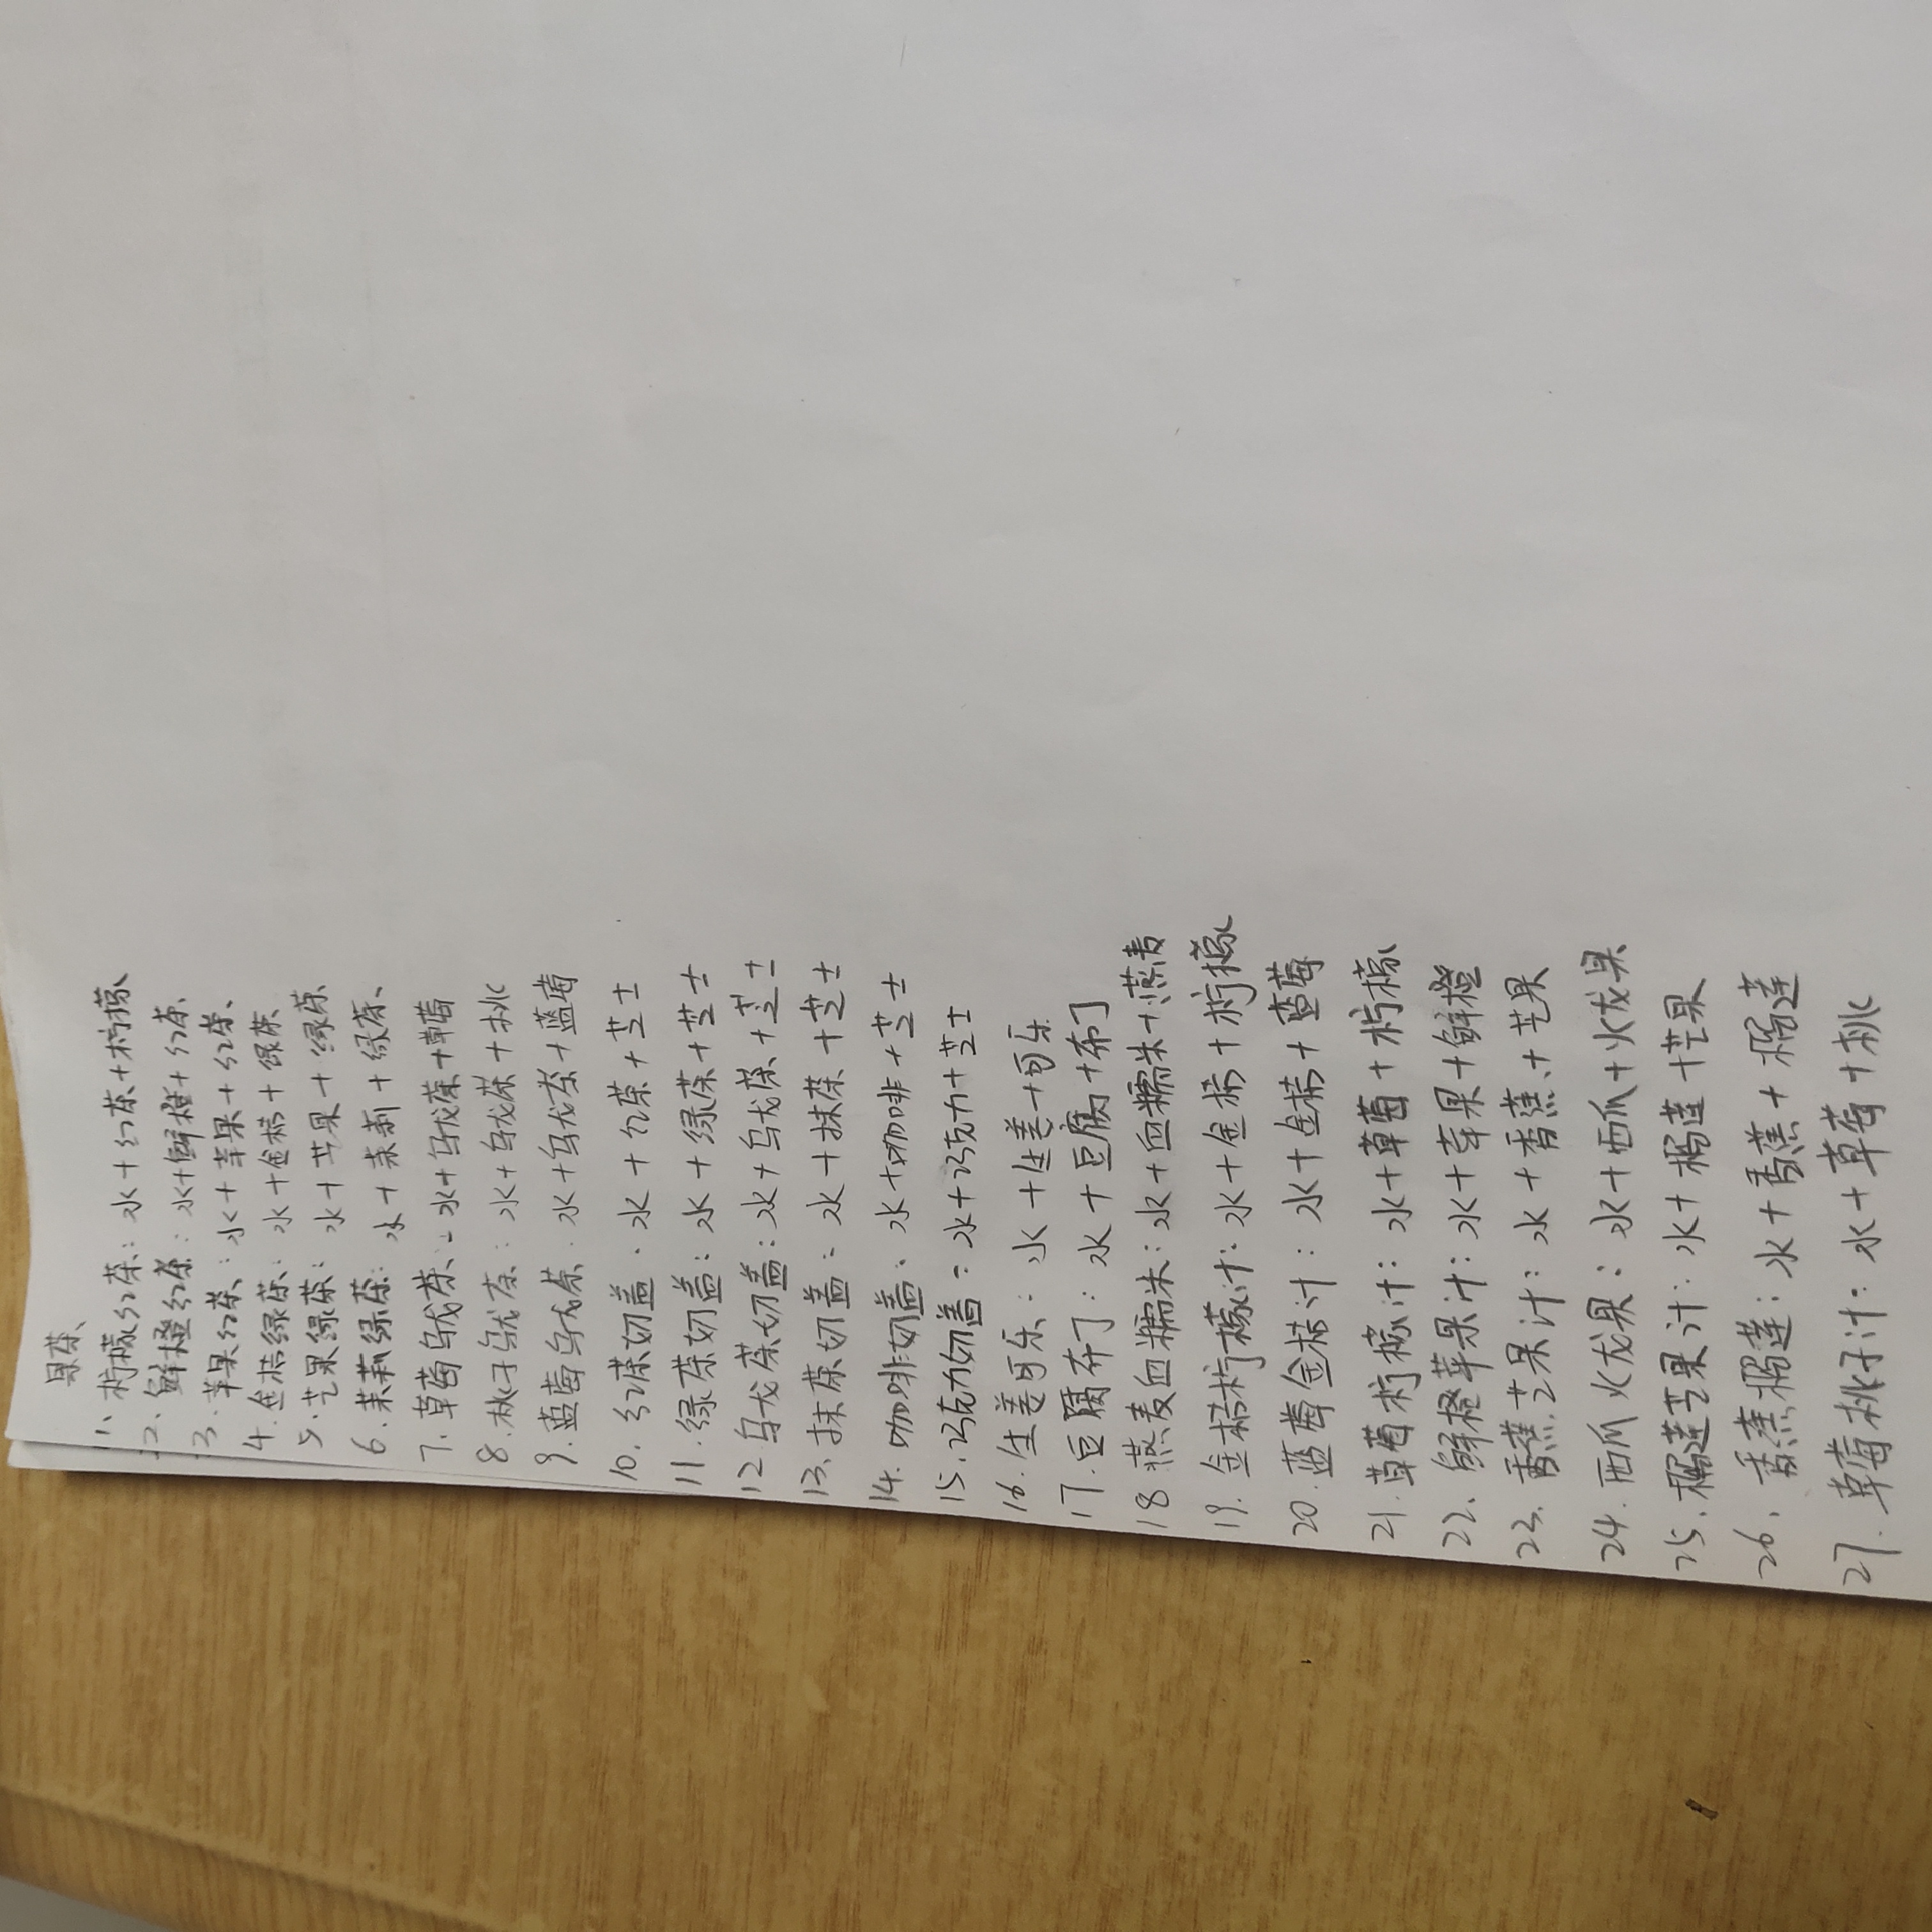 果茶、
1、柠檬红茶：水+红茶+柠檬
2、鲜橙红茶：水+鲜橙+红茶
3、苹果红茶：水+苹果+红茶、
4、金桔绿茶：水+金桔+绿茶
5、芒果绿茶：水+芒果+绿茶
6、茉莉绿茶：水+茉莉+绿茶、
7、草莓乌龙茶：水+乌龙茶+草莓
8、桃子乌龙茶：水+乌龙茶+桃
9、蓝莓乌龙茶：水+乌龙茶+蓝莓
10、红茶奶盖：水+红茶+芝士
11、绿茶奶盖：水+绿茶+芝士
12 乌龙茶奶盖：水+乌龙茶+芝士
13、抹茶奶盖：水+抹茶+芝士
14、咖啡奶盖：水+咖啡+芝士
15、巧克力奶盖：水+巧克力+芝士
16、生姜可乐：水+生姜+可乐
17、豆腐布丁：水+豆腐+布丁
18 燕麦血糯米：水+血糯米+燕麦
19、金桔柠檬汁：水+金桔+柠檬
20、蓝莓金桔汁：水+金桔+蓝莓
21、草莓柠檬汁：水+草莓+柠檬
22、鲜橙苹果汁：水+苹果+鲜橙
23、香蕉芒果汁：水+香蕉+芒果
24、西瓜火龙果：水+西瓜+火龙果
25、榴莲芒果汁：水+榴莲+芒果
26、香蕉榴莲：水+香蕉+榴莲
27、草莓桃子汁：水+草莓+桃